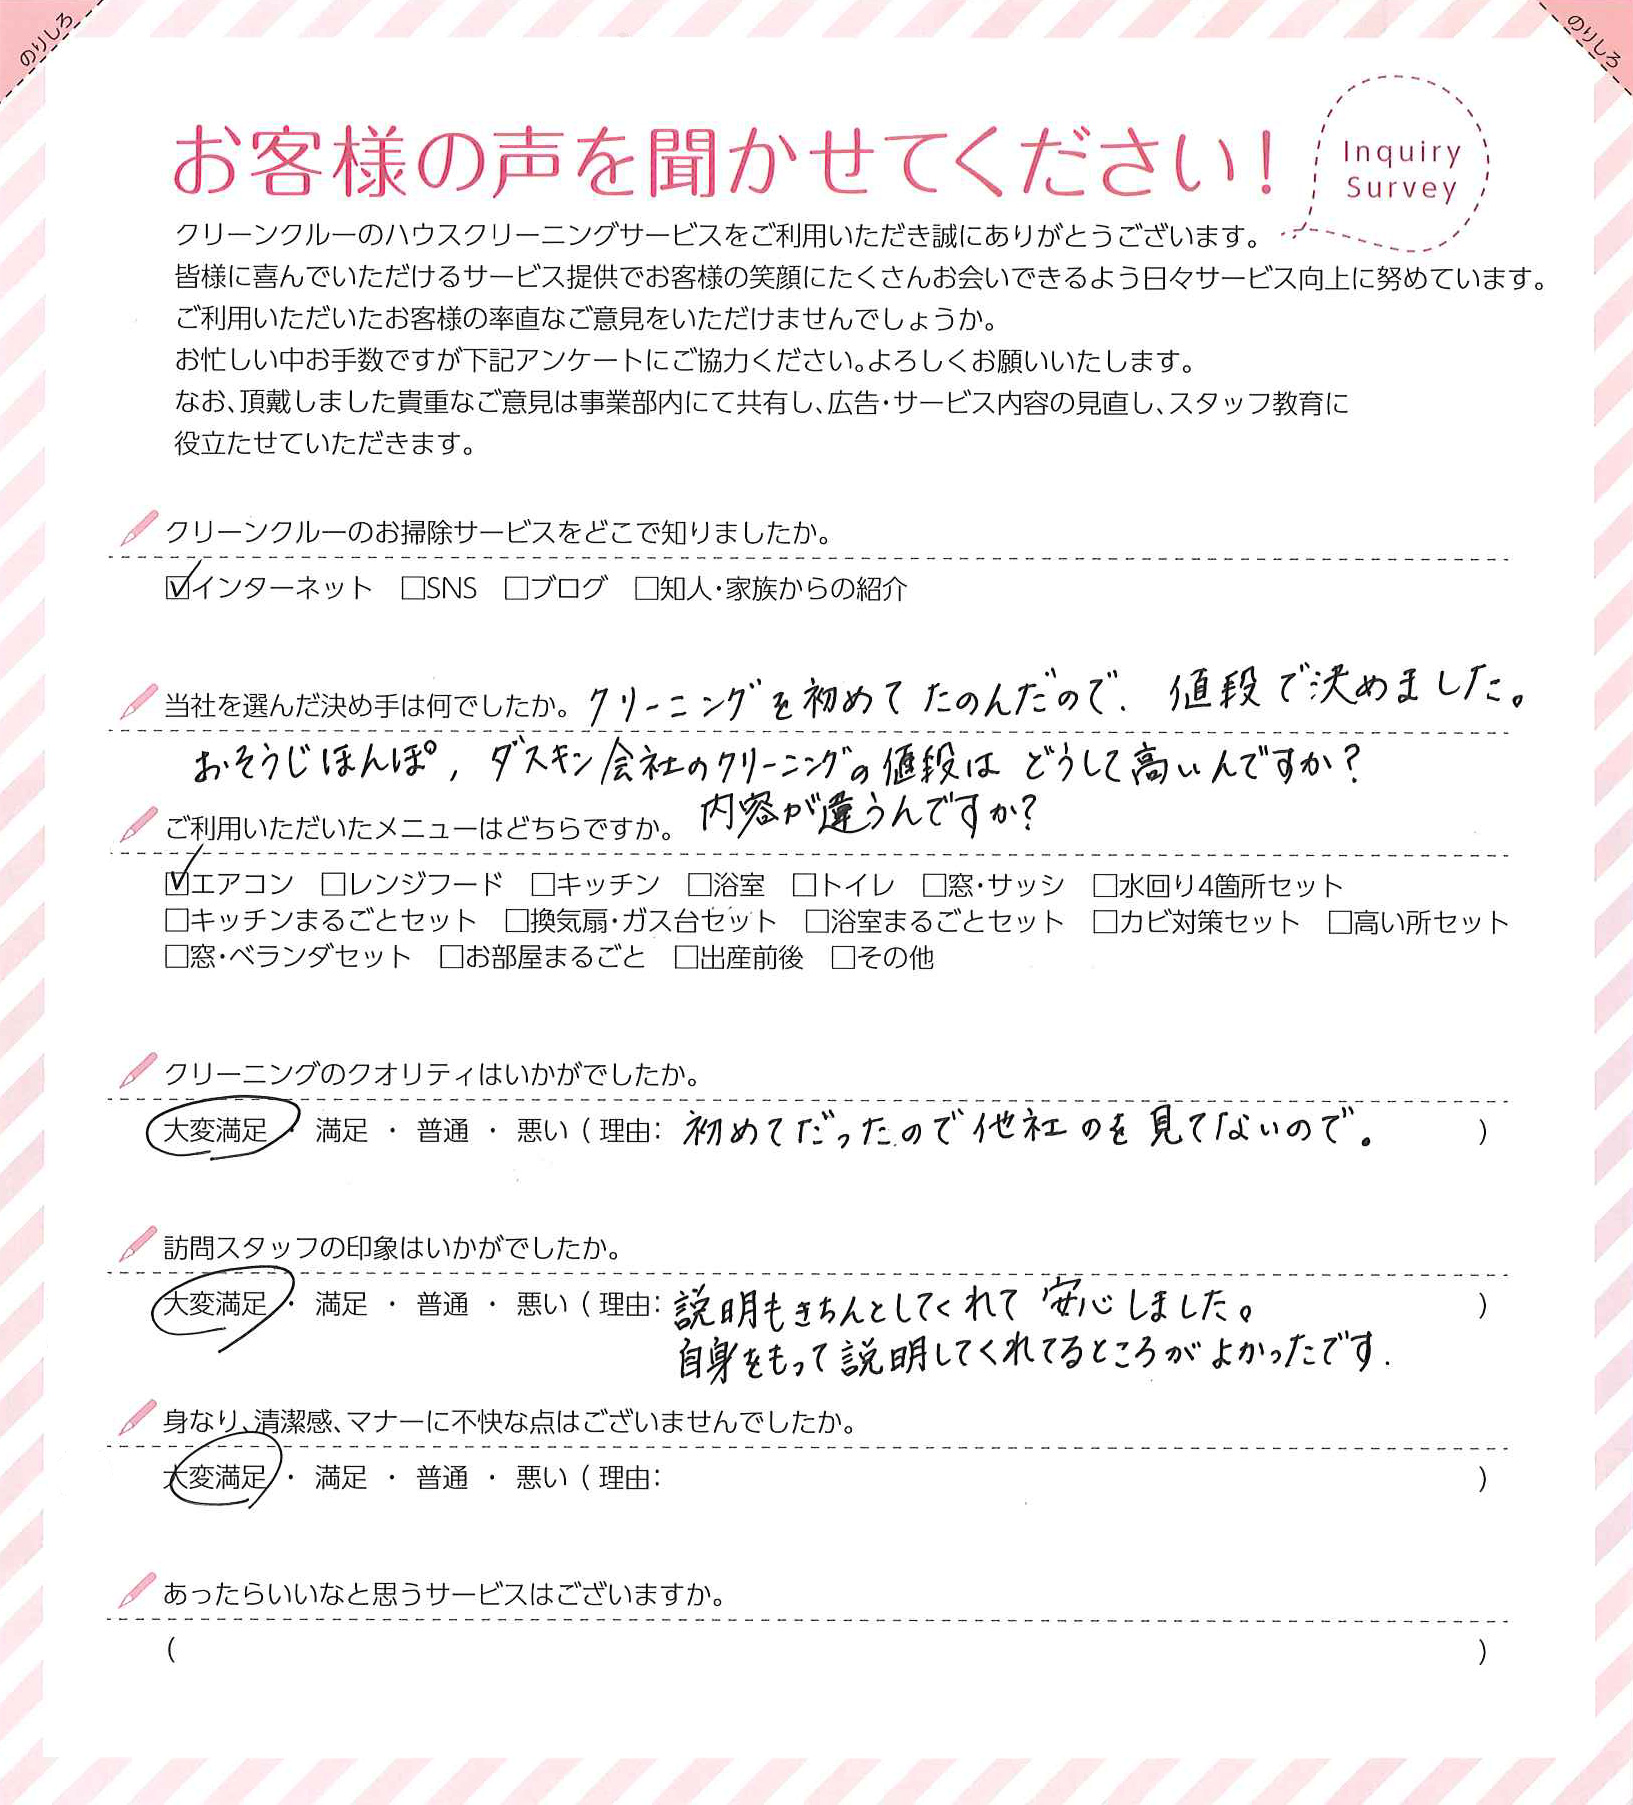 のりしろ
のりしろ
お客様の声を聞かせてください!
Inquiry
Survey
クリーンクルーのハウスクリーニングサービスをご利用いただき誠にありがとうございます。
皆様に喜んでいただけるサービス提供でお客様の笑顔にたくさんお会いできるよう日々サービス向上に努めています。
ご利用いただいたお客様の率直なご意見をいただけませんでしょうか。
お忙しい中お手数ですが下記アンケートにご協力ください。よろしくお願いいたします。
なお、頂戴しました貴重なご意見は事業部内にて共有し、広告・サービス内容の見直し、スタッフ教育に
役立たせていただきます。
クリーンクルーのお掃除サービスをどこで知りましたか。
☑インターネット □SNS □ブログ □知人・家族からの紹介
当社を選んだ決め手は何でしたか。クリーニングを初めてたのんだので、値段で決めました。
おそうじほんぽ, ダスキン会社のクリーニングの値段はどうして高いんですか?
内容が違うんですか?
ご利用いただいたメニューはどちらですか。
☑エアコン □レンジフード □キッチン □浴室 □トイレ □窓・サッシ □水回り4箇所セット
□キッチンまるごとセット □換気扇・ガス台セット □浴室まるごとセット □カビ対策セット □高い所セット
□窓・ベランダセット □お部屋まるごと □出産前後 □その他
クリーニングのクオリティはいかがでしたか。
大変満足 ・ 満足 ・ 普通 ・ 悪い ( 理由: 初めてだったので他社のを見てないので。 )
訪問スタッフの印象はいかがでしたか。
大変満足 ・ 満足 ・ 普通 ・ 悪い ( 理由: 説明もきちんとしてくれて安心しました。 )
自身をもって説明してくれてるところがよかったです.
身なり、清潔感、マナーに不快な点はございませんでしたか。
大変満足 ・ 満足 ・ 普通 ・ 悪い ( 理由: )
あったらいいなと思うサービスはございますか。
( )